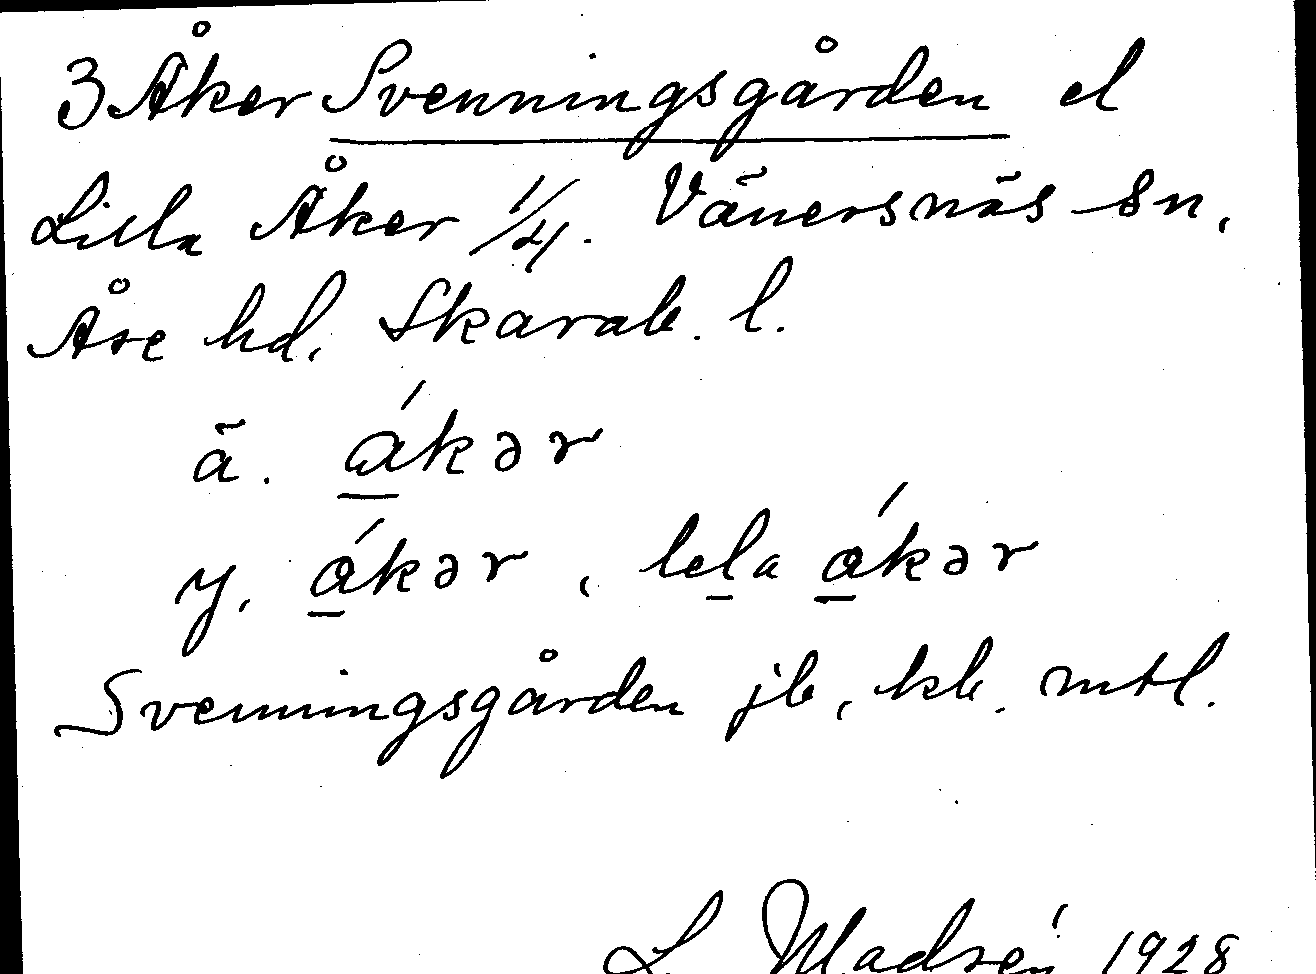 3 Åker Svenningsgården el
Lilla Åker 1/4. Vänersnäs sn,
Åse hd, Skarab. l.
ä. ákər
y. ákər, lela ákər
Svenningsgården jb, kb. mtl.
L. Madsén 1928